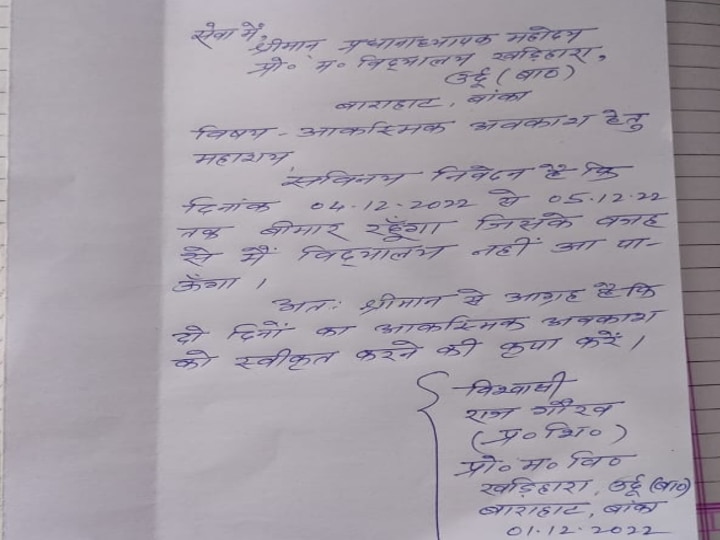 सेवा में,
श्रीमान प्रधानाध्यापक महोदय
प्रो० म० विद्यालय खड़िहारा,
उर्दू (बा०)
बाराहाट, बांका
विषय - आकस्मिक अवकाश हेतु
महाशय
सविनय निवेदन है कि
दिनांक 04.12.2022 से 05.12.22
तक बीमार रहूँगा जिसके वजह
से मैं विद्यालय नहीं आ पा-
ऊँगा ।
अतः श्रीमान से आग्रह है कि
दो दिनों का आकस्मिक अवकाश
को स्वीकृत करने की कृपा करें ।
विश्वासी
राज गौरव
(प्र० शि०)
प्रो० म० वि०
खड़िहारा, उर्दू (बा०)
बाराहाट, बांका
01.12.2022